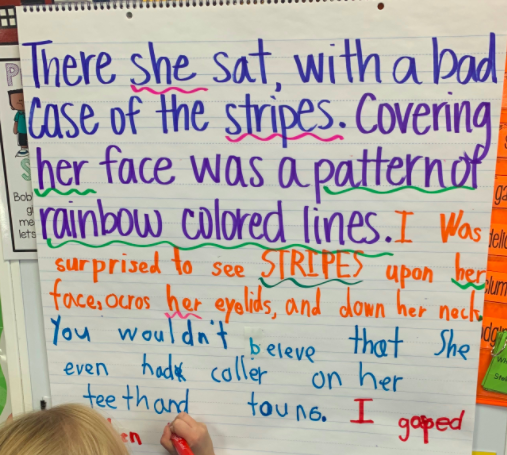 There she sat, with a bad
case of the stripes. Covering
her face was a pattern of
rainbow colored lines. I was
surprised to see STRIPES upon her
face, ocros her eyelids, and down her neck.
You wouldn't beleve that She
even had coller on her
teeth and toung. I gaped
Bob
me
lets